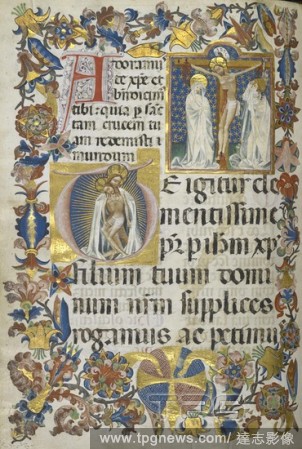 Adoramu
te xpe et
bñdicim
tibi: quia p sāc
tam crucem tu
am redemisti
mundum
Te igitur cle
mentissime
p̄r p ihm xp̄
filium tuum domi
num nr̄m supplices
rogamus ac petimu
TPG
www.tpgnews.com/ 達志影像